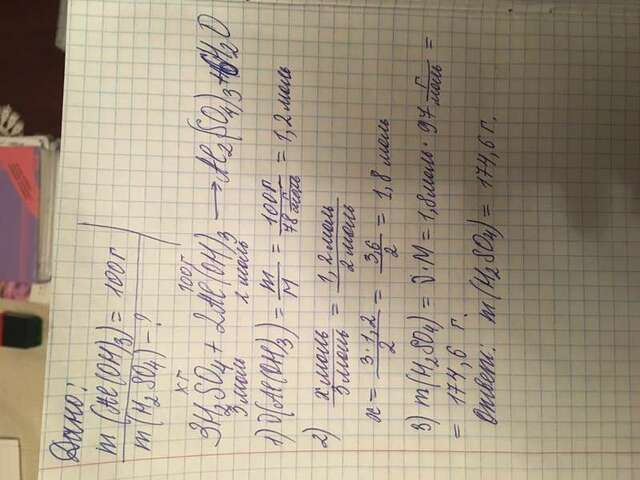 Дано:
m(Al(OH)3) = 100г
m(H2SO4) - ?
xг 100г
3H2SO4 + 2Al(OH)3 → Al2(SO4)3 + 6H2O
3моль 2 моль
1) ν(Al(OH)3) = m/M = 100г/78 г/моль = 1,2 моль
2) x моль/3 моль = 1,2 моль/2 моль
x = 3·1,2/2 = 3,6/2 = 1,8 моль
3) m(H2SO4) = ν·M = 1,8моль · 97 г/моль =
= 174,6 г.
Ответ: m(H2SO4) = 174,6 г.